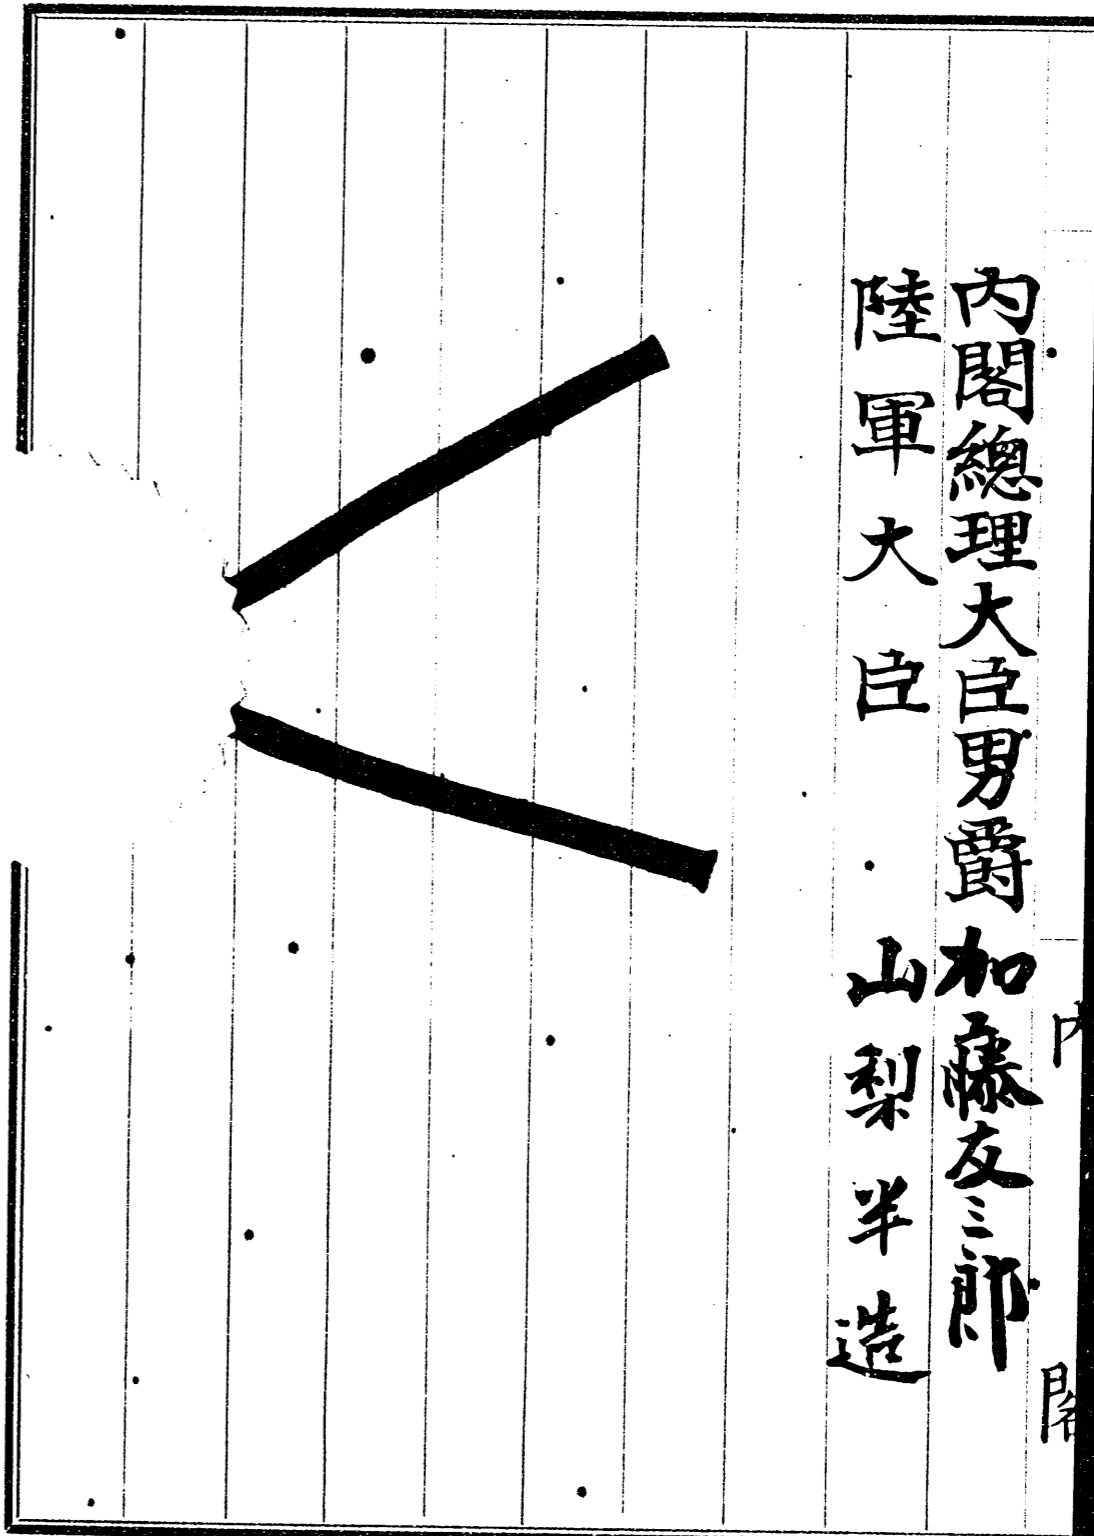 内閣
内閣總理大臣男爵加藤友三郎
陸軍大臣 山梨半造